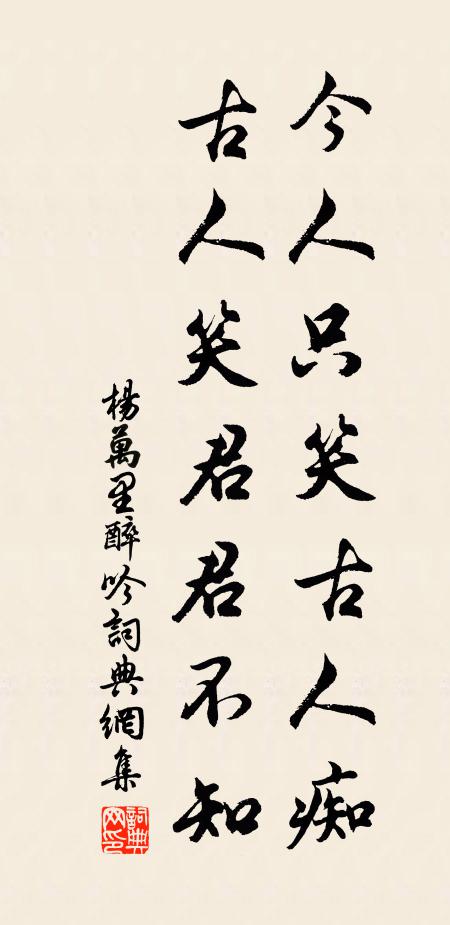 今人只笑古人痴
古人笑君君不知
楊萬里醉吟詞典網集
詞典网印